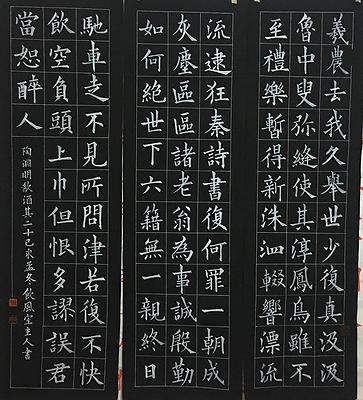 羲農去我久舉世少復真汲汲
魯中叟弥縫使其淳鳳鳥雖不
至禮樂暫得新洙泗輟響漂流
流逮狂秦詩書復何罪一朝成
灰塵區區諸老翁為事誠殷勤
如何絕世下六籍無一親終日
馳車走不見所問津若復不快
飲空負頭上巾但恨多謬誤君
當恕醉人
陶淵明飲酒其二十己亥孟冬飲風室主人書